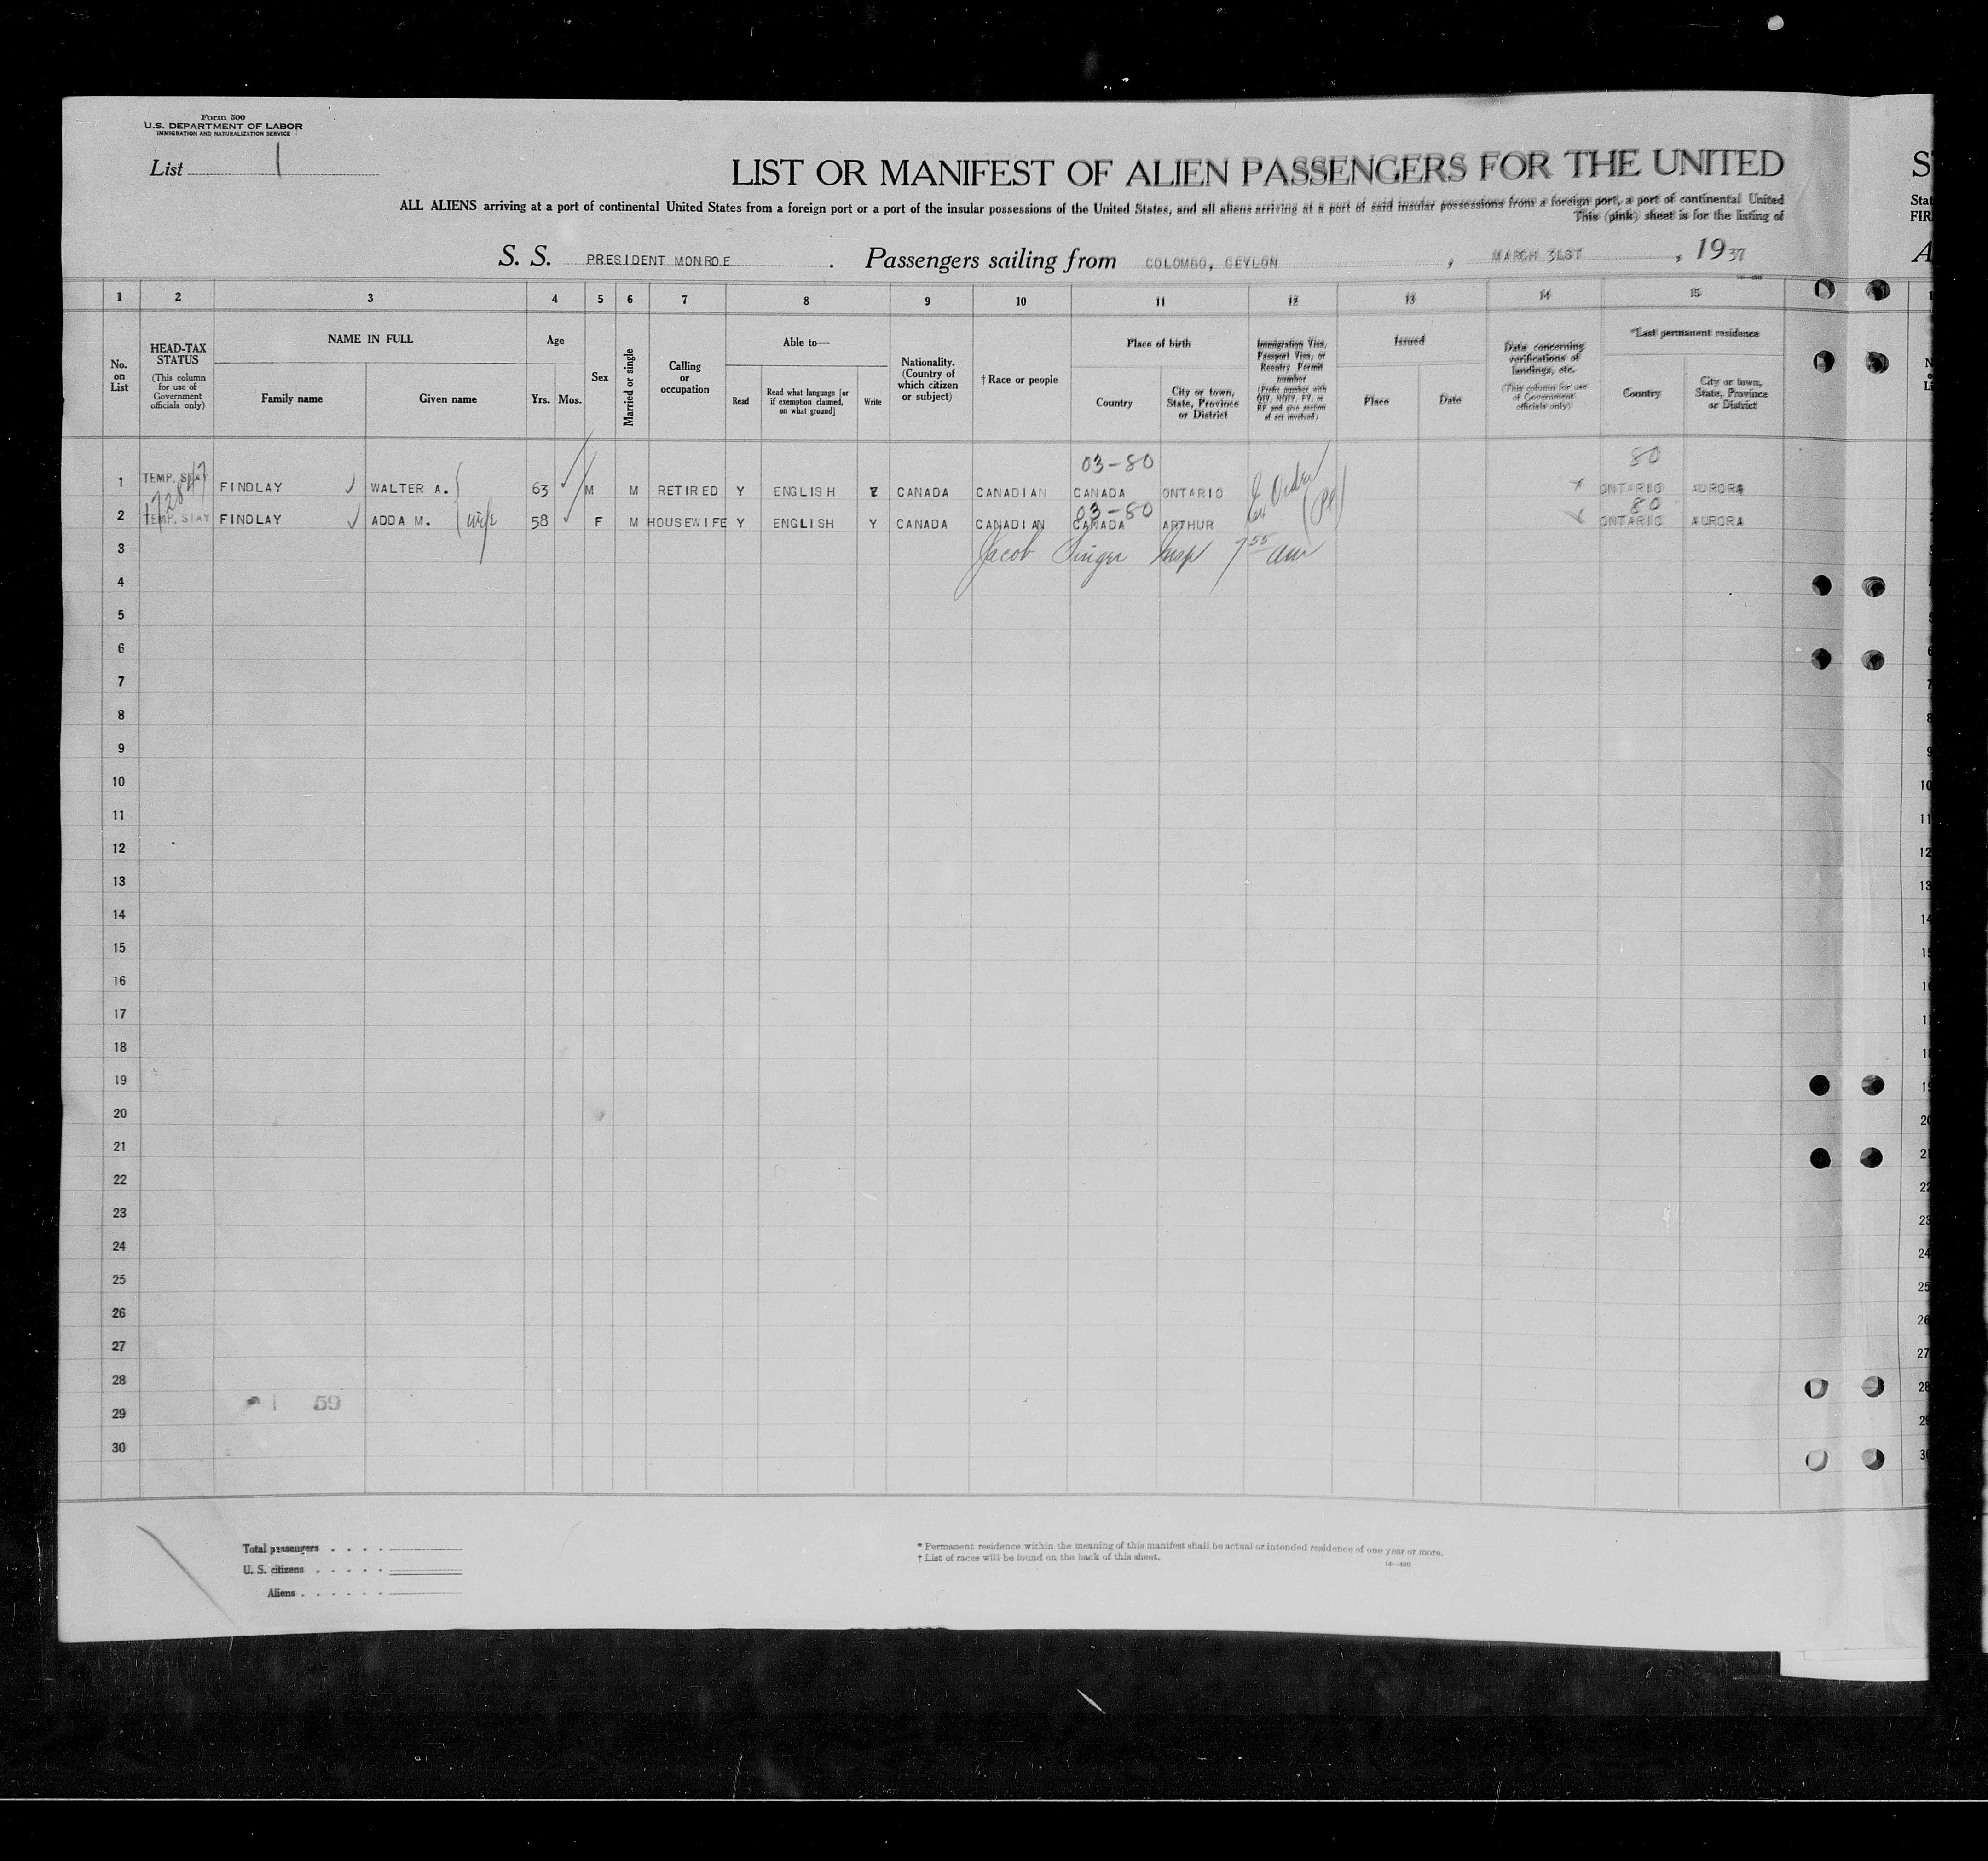 Form 500
U.S. DEPARTMENT OF LABOR
IMMIGRATION AND NATURALIZATION SERVICE
List 1
LIST OR MANIFEST OF ALIEN PASSENGERS FOR THE UNITED
S
ALL ALIENS arriving at a port of continental United States from a foreign port or a port of the insular possessions of the United States, and all aliens arriving at a port of said insular possessions from a foreign port, a port of continental United
Stat
This (pink) sheet is for the listing of
FIR
S. S. PRESIDENT MONROE. Passengers sailing from COLOMBO, CEYLON, MARCH 31ST, 1937
A
1 2 3 4 5 6 7 8 9 10 11 12 13 14 15
No. on List
HEAD-TAX STATUS
(This column for use of Government officials only)
NAME IN FULL
Family name
Given name
Age
Yrs. Mos.
Sex
Married or single
Calling or occupation
Able to—
Read
Read what language [or if exemption claimed, on what ground]
Write
Nationality. (Country of which citizen or subject)
†Race or people
Place of birth
Country
City or town, State, Province or District
Immigration Visa, Passport Visa, or Reentry Permit number
(Prefix number with QIV, NQIV, PV, or RP and give section of act involved)
Issued
Place
Date
Data concerning verifications of landings, etc.
(This column for use of Government officials only)
*Last permanent residence
Country
City or town, State, Province or District
03-80 80
1 TEMP. STAY FINDLAY WALTER A. 63 M M RETIRED Y ENGLISH Y CANADA CANADIAN CANADA ONTARIO ONTARIO AURORA
03-80 80
2 TEMP. STAY FINDLAY ADDA M. wife 58 F M HOUSEWIFE Y ENGLISH Y CANADA CANADIAN CANADA ARTHUR ONTARIO AURORA
3 Jacob Singer Insp 7 55 am
4
5
6
7
8
9
10
11
12
13
14
15
16
17
18
19
20
21
22
23
24
25
26
27
28
59
29
30
Total passengers
U. S. citizens
Aliens
* Permanent residence within the meaning of this manifest shall be actual or intended residence of one year or more.
† List of races will be found on the back of this sheet.